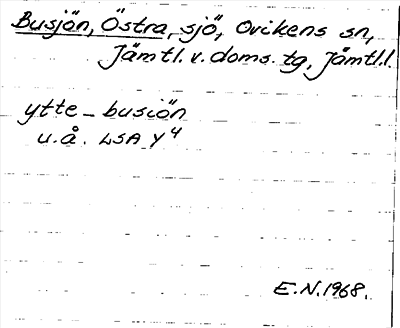 Busjön, Östra, sjö, Ovikens sn,
Jämtl. v. doms. tg, Jämtl.l.
ytte - busiön
u.å. LSA Y4
E.N. 1968.